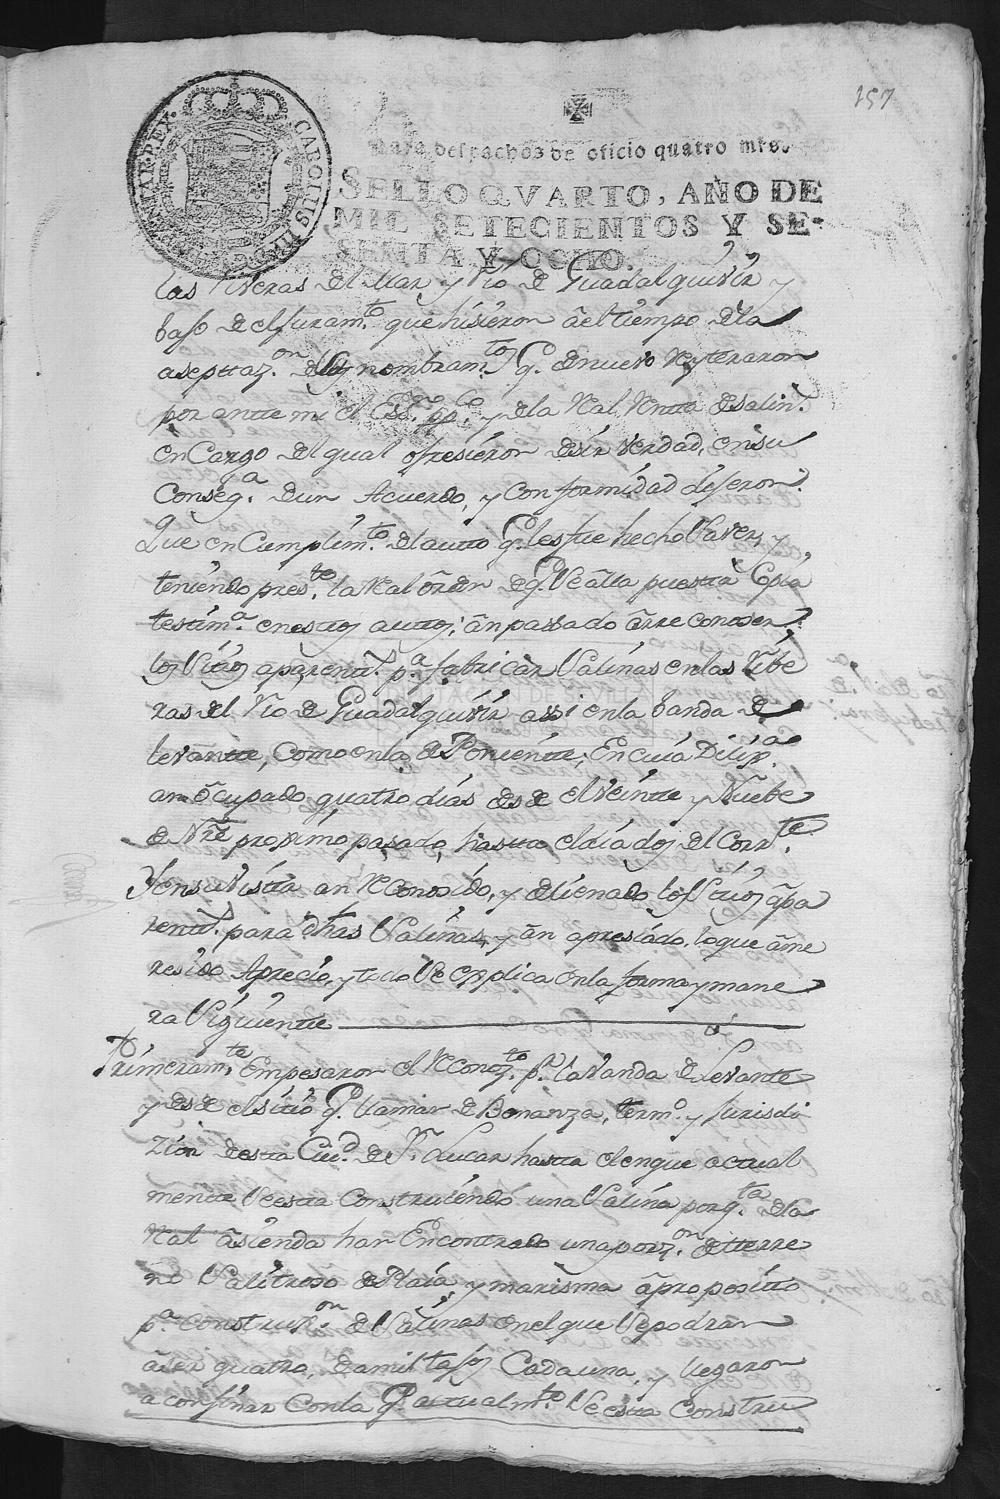 157
Para despachos de oficio quatro mrs.
SELLO QVARTO, AÑO DE
MIL SETECIENTOS Y SE-
SENTA Y OCHO.
CAROLUS III
las Riveras del Mar y Rio de Guadalquivir y
bajo de el Juram.to que hisieron a el tiempo de la
aseptaz.on de los nombram.tos q.e de nuevo Reyteraron
por ante mi el Es.no pp.co y de la Real Renta de salin.s
en Cargo del qual ofresieron desir verdad, en su
Conseq.a de un Acuerdo, y conformidad dijeron
Que en Cumplim.to del auto q.e les fue hecho Saver, y
teniendo pres.te la Real orden de q.e Se alla puesta Copia
testim.a en estos autos; an passado a rreconoser
los Sitios aparent.s p.a fabricar Salinas en las Ribe
ras del Rio de Guadalquivir assi en la banda de
levante, como en la de Poniente; En cuia Dilix.a
an ocupado quatro dias desde el veinte y Nuebe
de N.re proximo pasado, hasta el dia dos del Corr.te
Y en su Vista an Reconosido, y delienado los Sitios apa
rent.s para dhas Salinas, y an apresiado, lo que a me
resido Aprecio, y todo Se explica en la forma y mane
ra Siguiente
Primeram.te Empesaron el Recono.to p.r la Vanda de Levante
y desde el sitio q.e llaman de Bonanza, term.o y Jurisdi
zion desta Ciu.d de S.n Lucar hasta el en que actual
mente Se esta Construiendo una Salina por q.ta de la
Real asienda han Encontrado una porz.on de terre
no Salitroso de Plaia, y marisma a proposito
p.a construx.on de Salinas en el que Se podran
aser quatro, de a mil tajos Cada una, y llegaron
a confinar Con la q.e actualm.te Se esta Constru